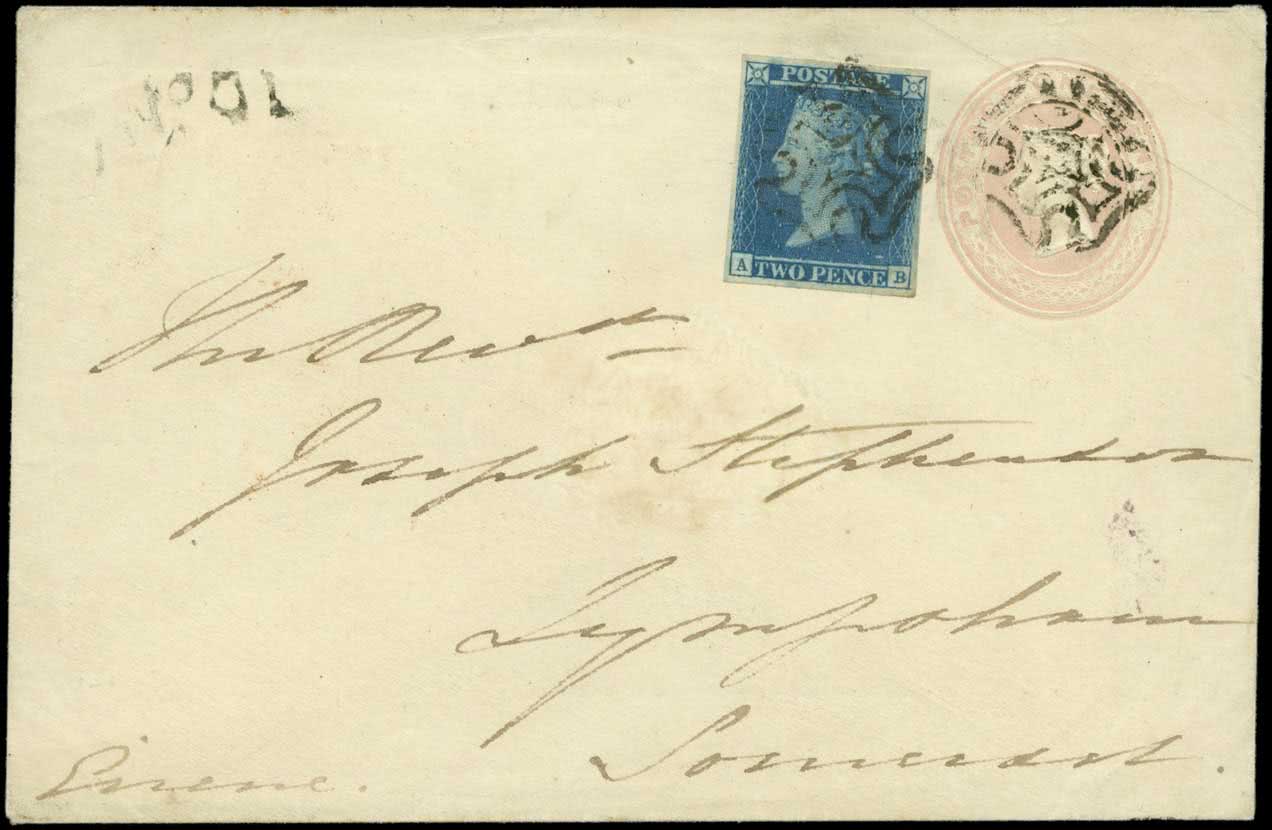 No. 1
POSTAGE
A TWO PENCE B
The Revd
Joseph Stephenson
Lympsham
Somerset.
Eirene.